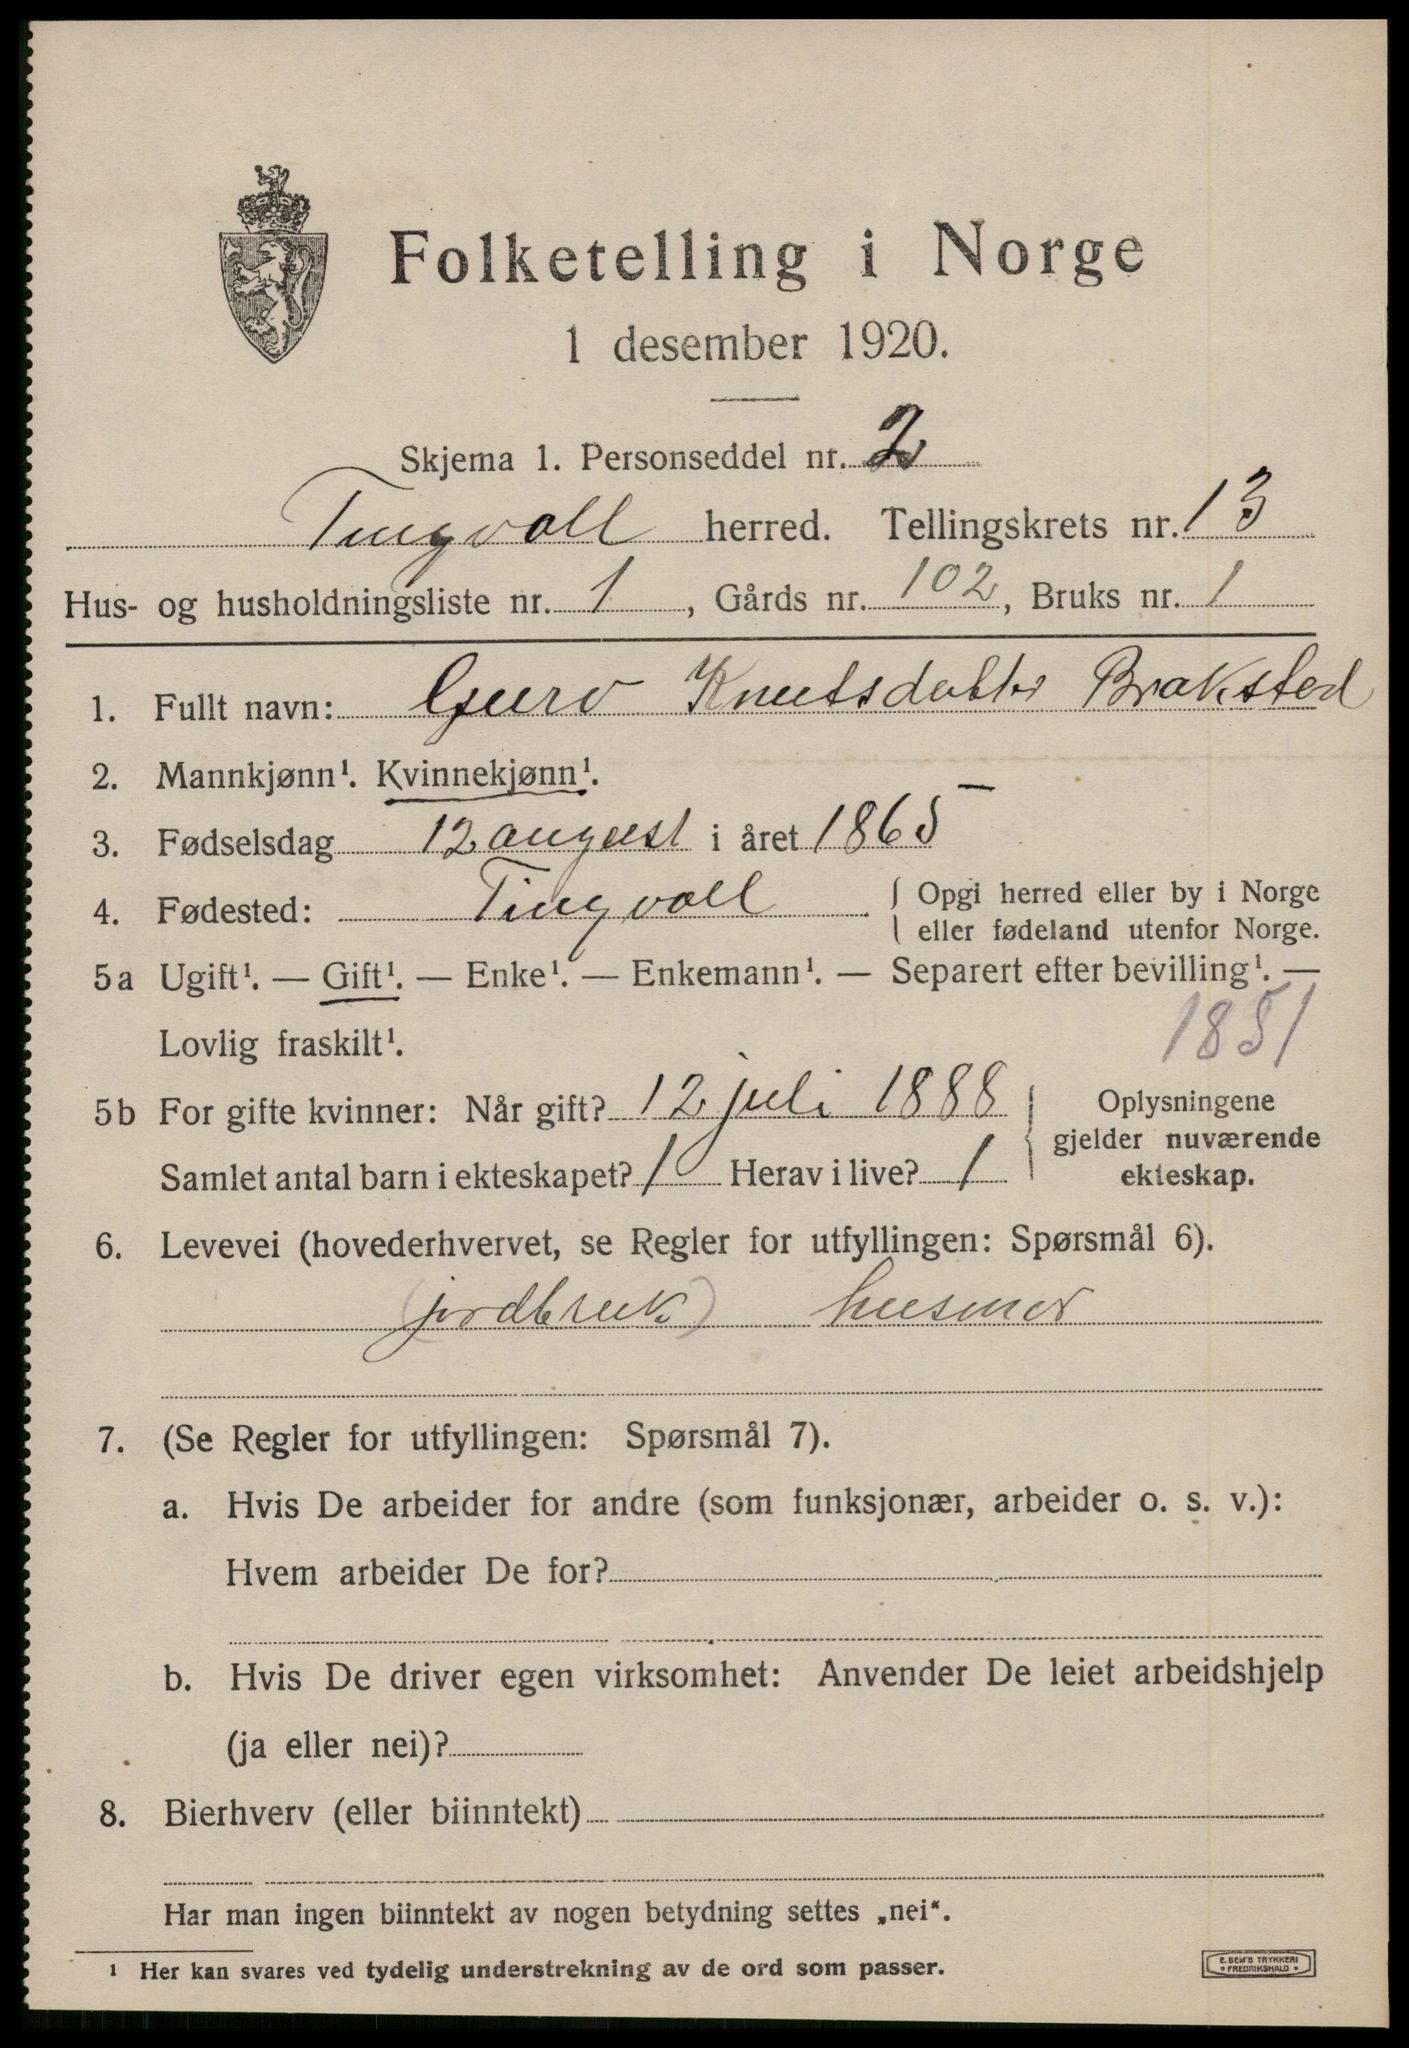 Folketelling i Norge
1 desember 1920.
Skjema 1. Personseddel nr. 2
Tingvoll herred. Tellingskrets nr. 13
Hus- og husholdningsliste nr. 1, Gårds nr. 102, Bruks nr. 1
1. Fullt navn: Guro Knutsdatter Braksted
2. Mannkjønn¹. Kvinnekjønn¹.
3. Fødselsdag 12 august i året 1865
4. Fødested: Tingvoll { Opgi herred eller by i Norge
eller fødeland utenfor Norge.
5a Ugift¹. — Gift¹. — Enke¹. — Enkemann¹. — Separert efter bevilling¹. —
Lovlig fraskilt¹. 1851
5b For gifte kvinner: Når gift? 12 juli 1888
Samlet antal barn i ekteskapet? 1 Herav i live? 1
Oplysningene
gjelder nuværende
ekteskap.
6. Levevei (hovederhvervet, se Regler for utfyllingen: Spørsmål 6).
(jordbruk) husmor
7. (Se Regler for utfyllingen: Spørsmål 7).
a. Hvis De arbeider for andre (som funksjonær, arbeider o. s. v.):
Hvem arbeider De for?
b. Hvis De driver egen virksomhet: Anvender De leiet arbeidshjelp
(ja eller nei)?
8. Bierhverv (eller biinntekt)
Har man ingen biinntekt av nogen betydning settes „nei“.
¹ Her kan svares ved tydelig understrekning av de ord som passer.
E. SEM'S TRYKKERI
* FREDRIKSHALD *